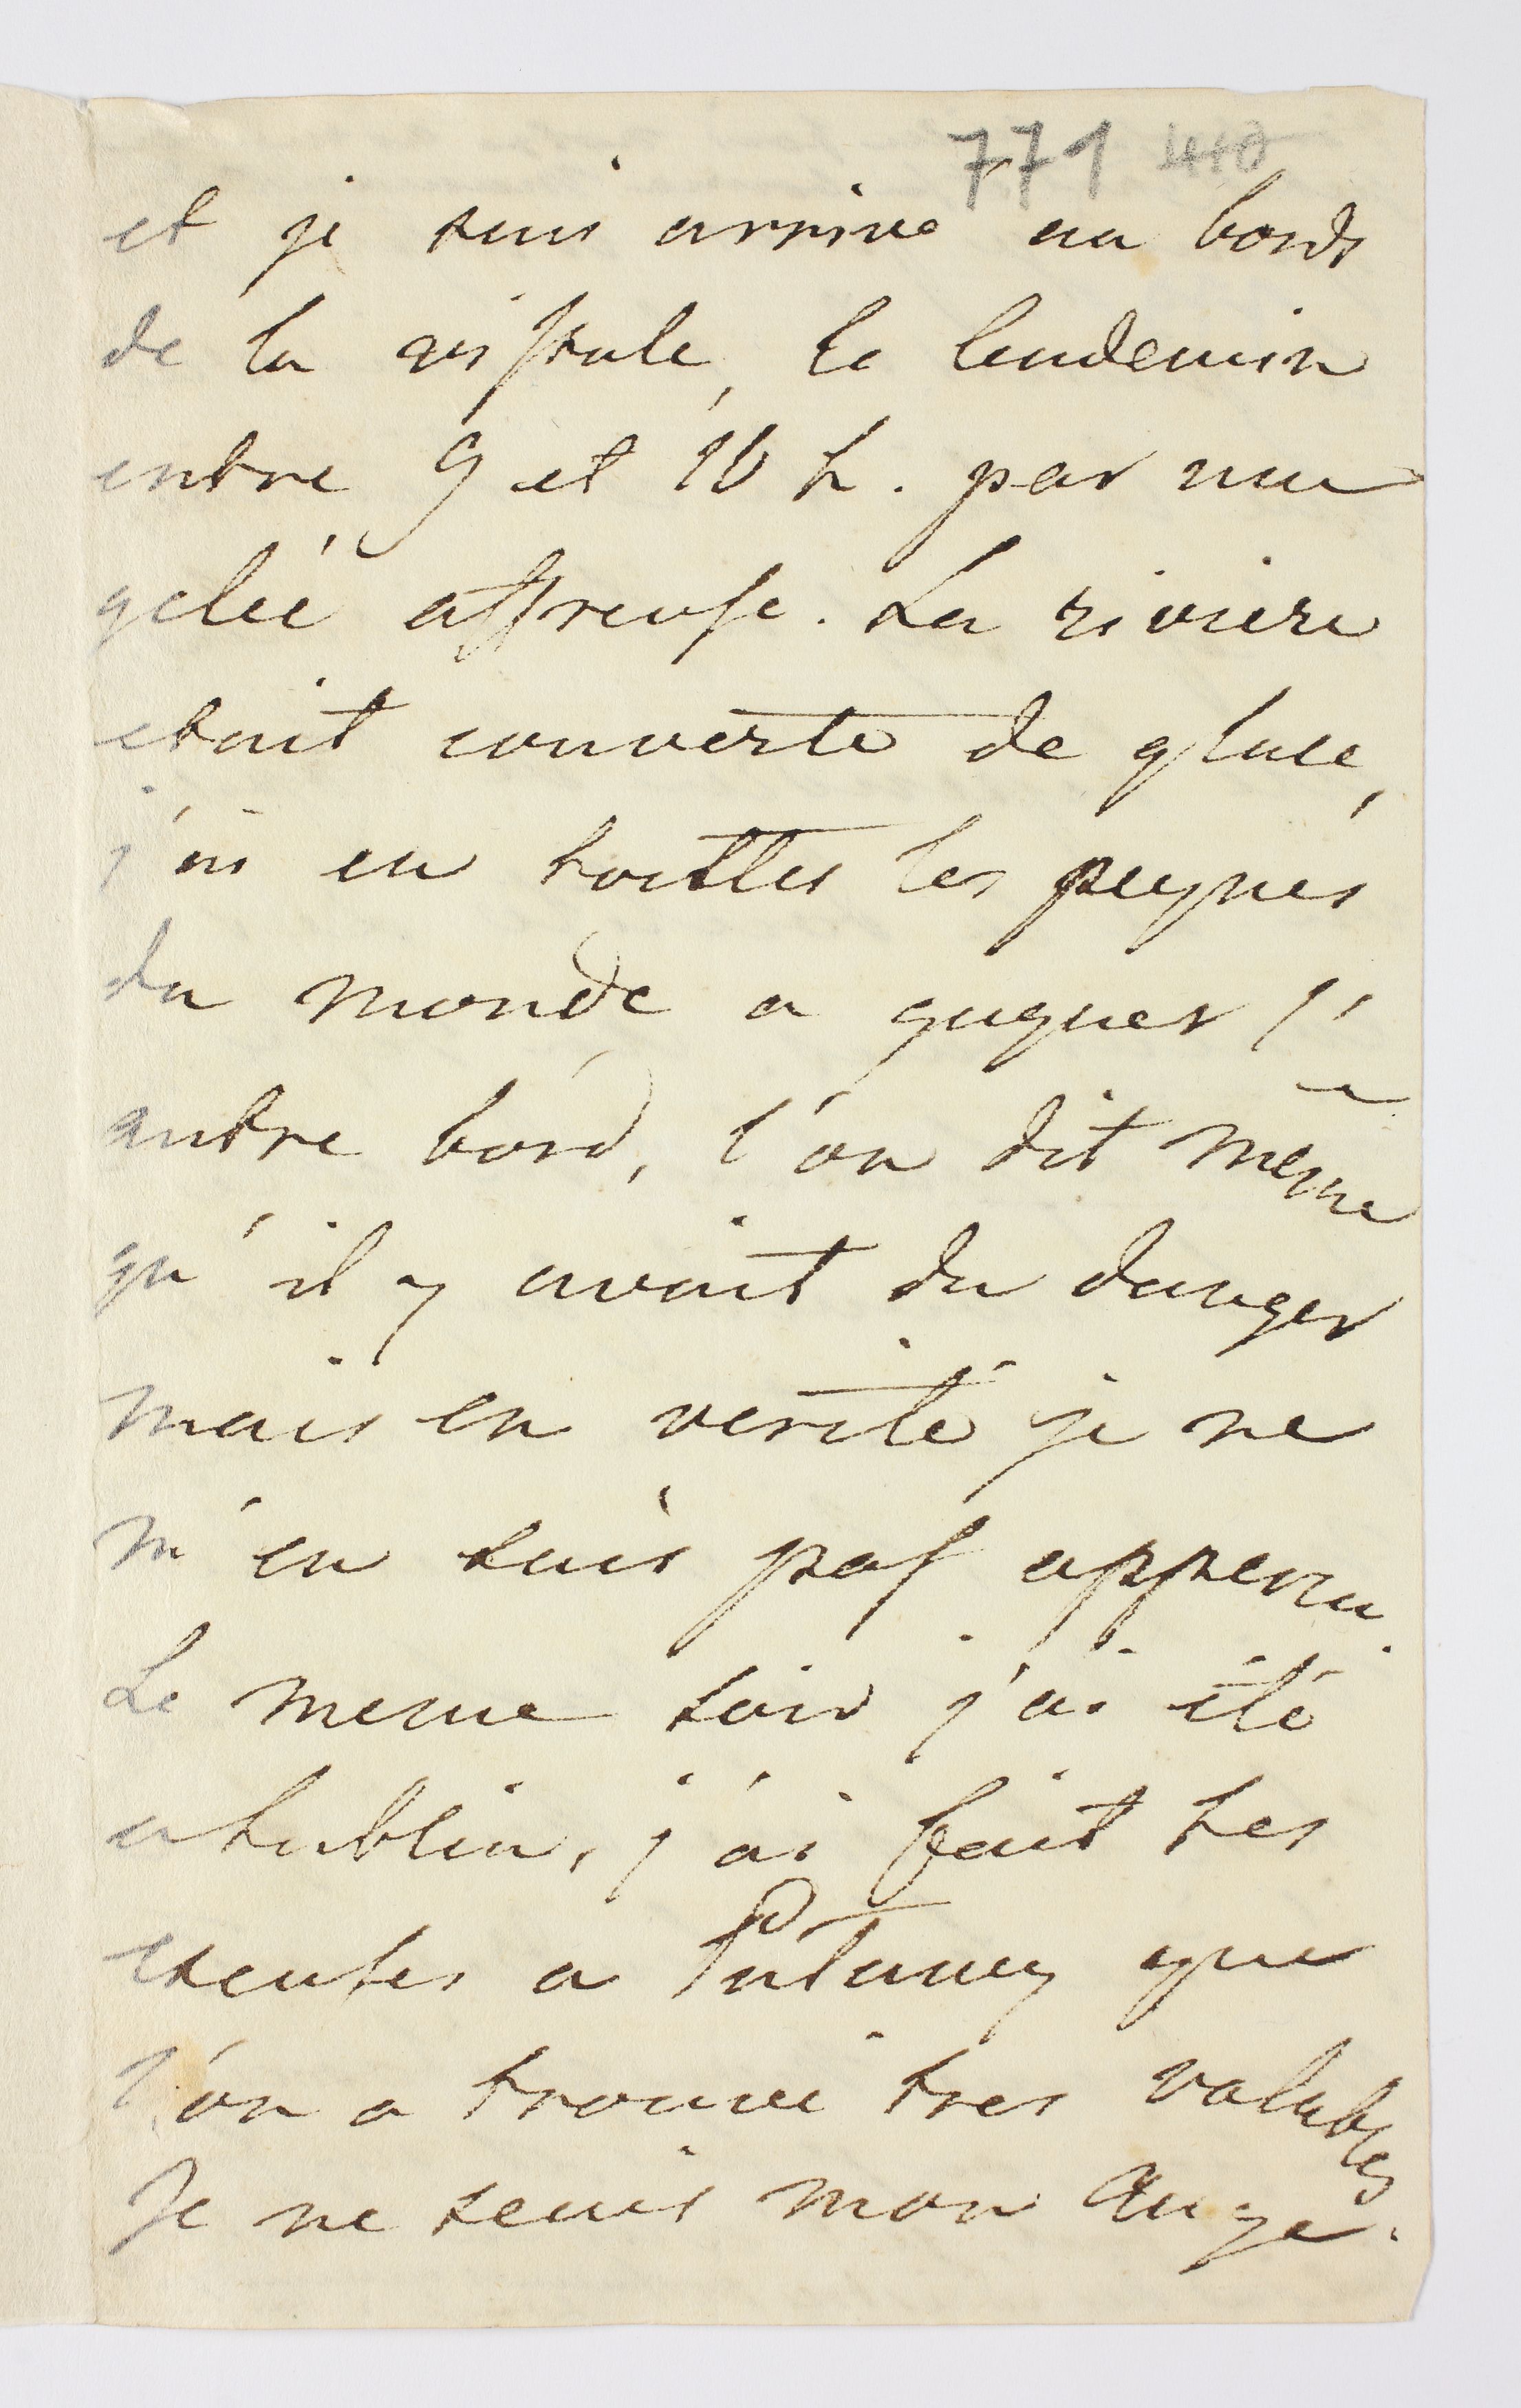 771 440
et je suis arrive au bords
de la vistule, le lendemin
entre 9 et 10 h. par une
gelée affreuse. La riviere
etait couverte de glace,
j'ai eu touttes les peynes
du monde a gagner l'
autre bord, l'on dit même
qu'il y avait du danger
mais en verité je ne
m'en suis pas apperçu.
Le meme soir j'ai été
a Lublin, j'ai fait tes
excuses a Pulawy que
l'on a trouvé tres valables
Je ne sais mon Ange.